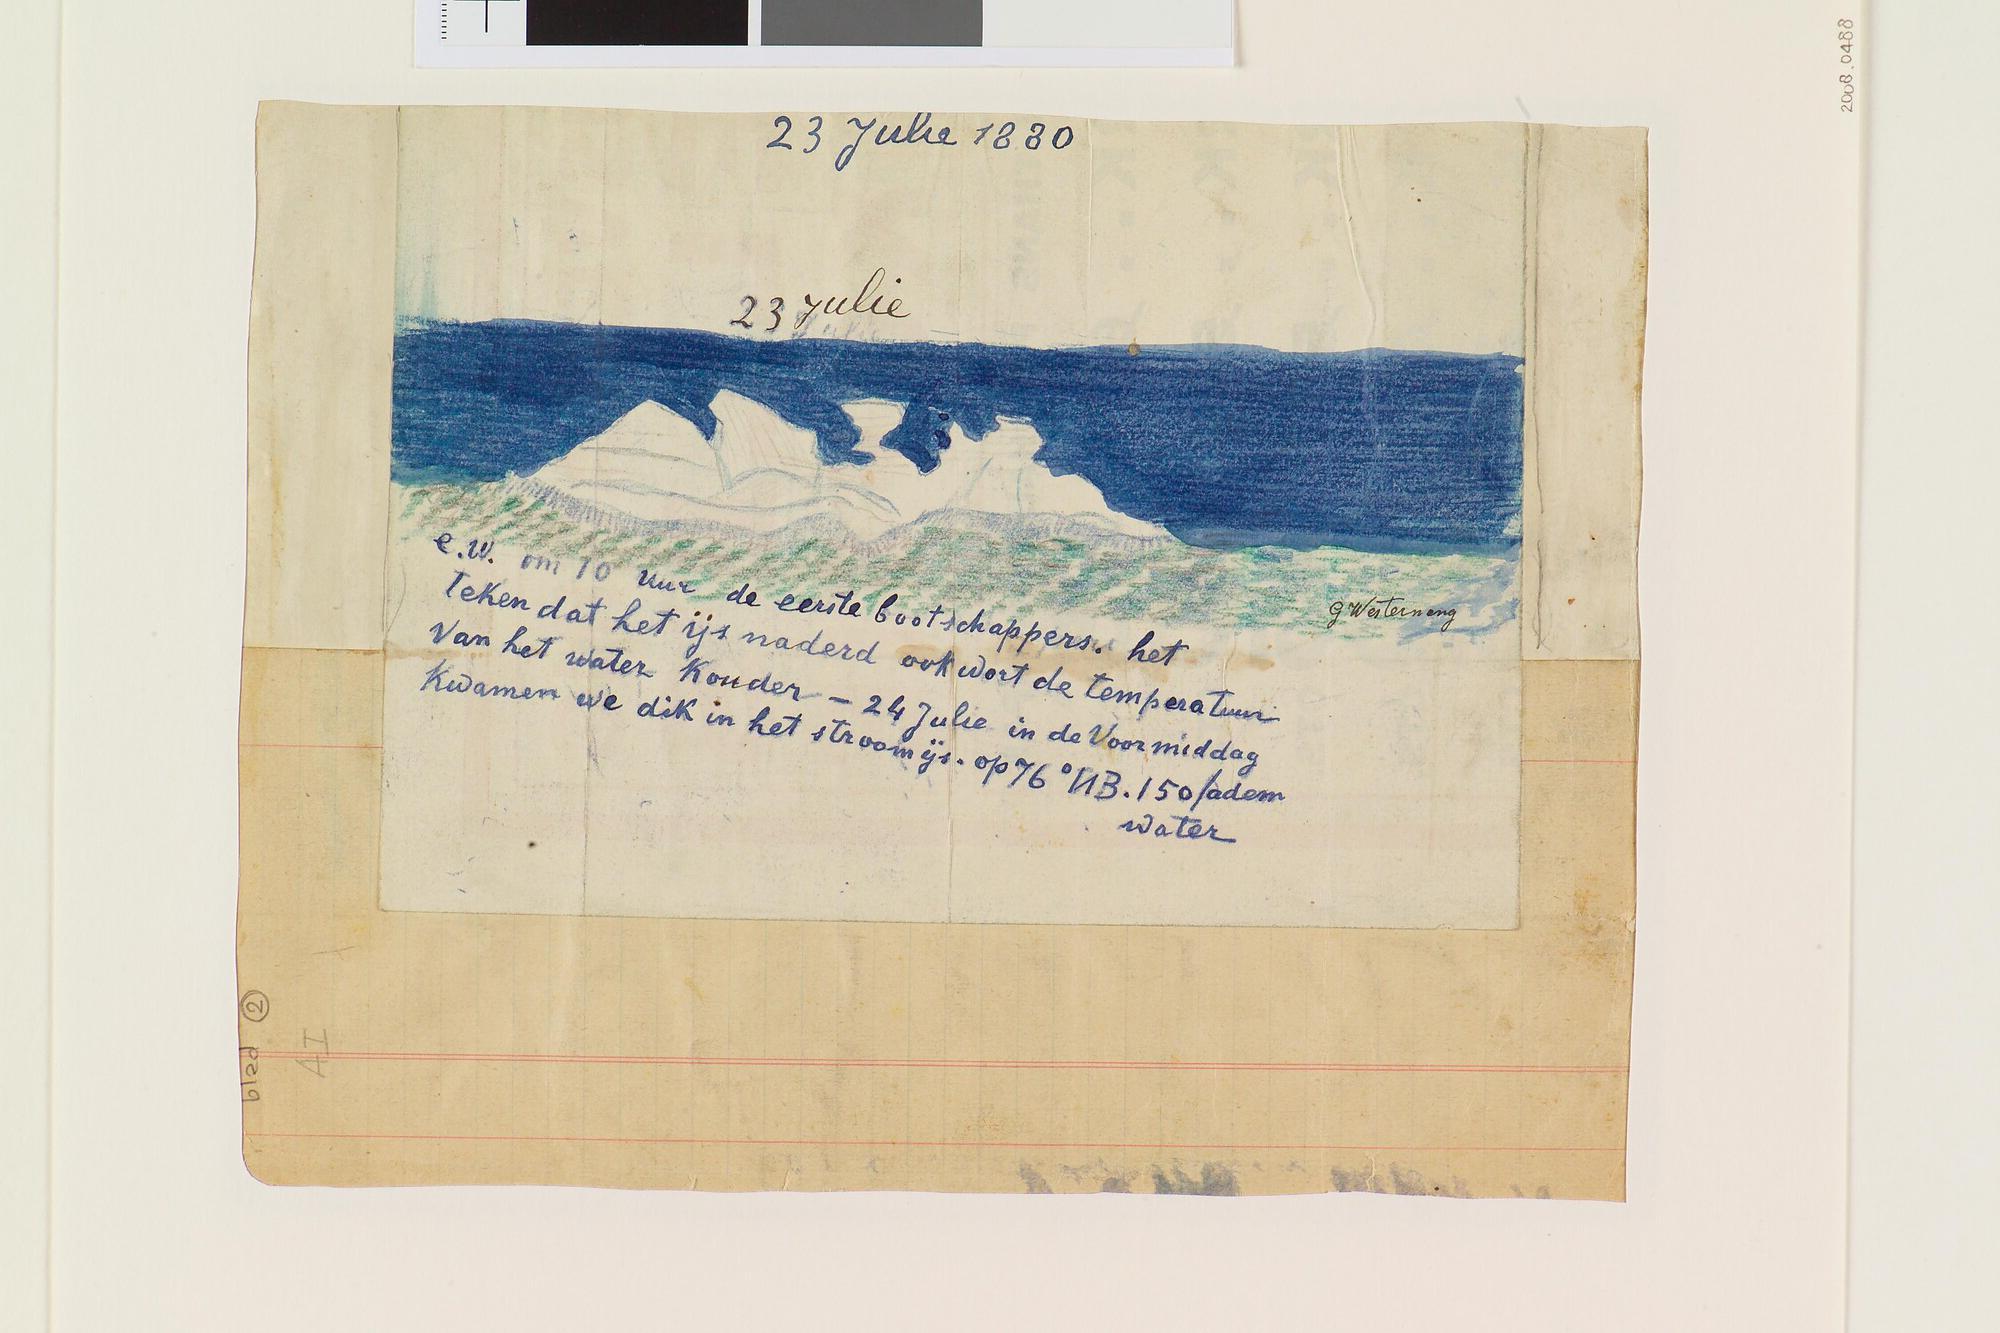 2008.0488
23 Julie 1880
23 Julie
e.W. om 10 uur de eerste bootschappers. het
teken dat het ijs naderd ook wort de temperatuur
Van het water Kouder – 24 Julie in de Voormiddag
Kwamen we dik in het stroomijs. op 76° NB. 150 fadem
water
G Westerneng
blad 2
AI